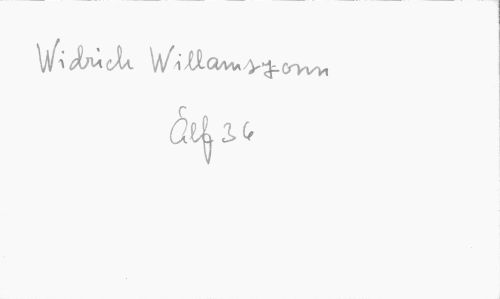 Widrich Willamszonn
Älf 36